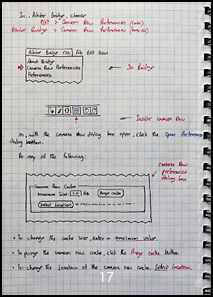 In.. Adobe Bridge, choose:
Edit > Camera Raw Preferences (win)
Adobe Bridge > Camera Raw Preferences (mac os)
Adobe Bridge CS5 File Edit View
About Bridge
Camera Raw Preferences
Preferences
In Bridge
Inside camera Raw
or, with the camera Raw dialog box open, click the Open Preferences
dialog button.
Do any of the following:
camera Raw
preferences
dialog box
Camera Raw Cache
Maximum Size: GB Purge Cache
Select Location
• To change the cache size, enter a maximum value.
• To purge the camera raw cache, click the Purge cache button.
• To change the Location of the camera raw cache, Select Location.
17